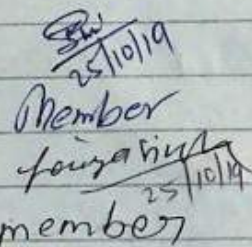 25/10/19
Member
25/10/19
member